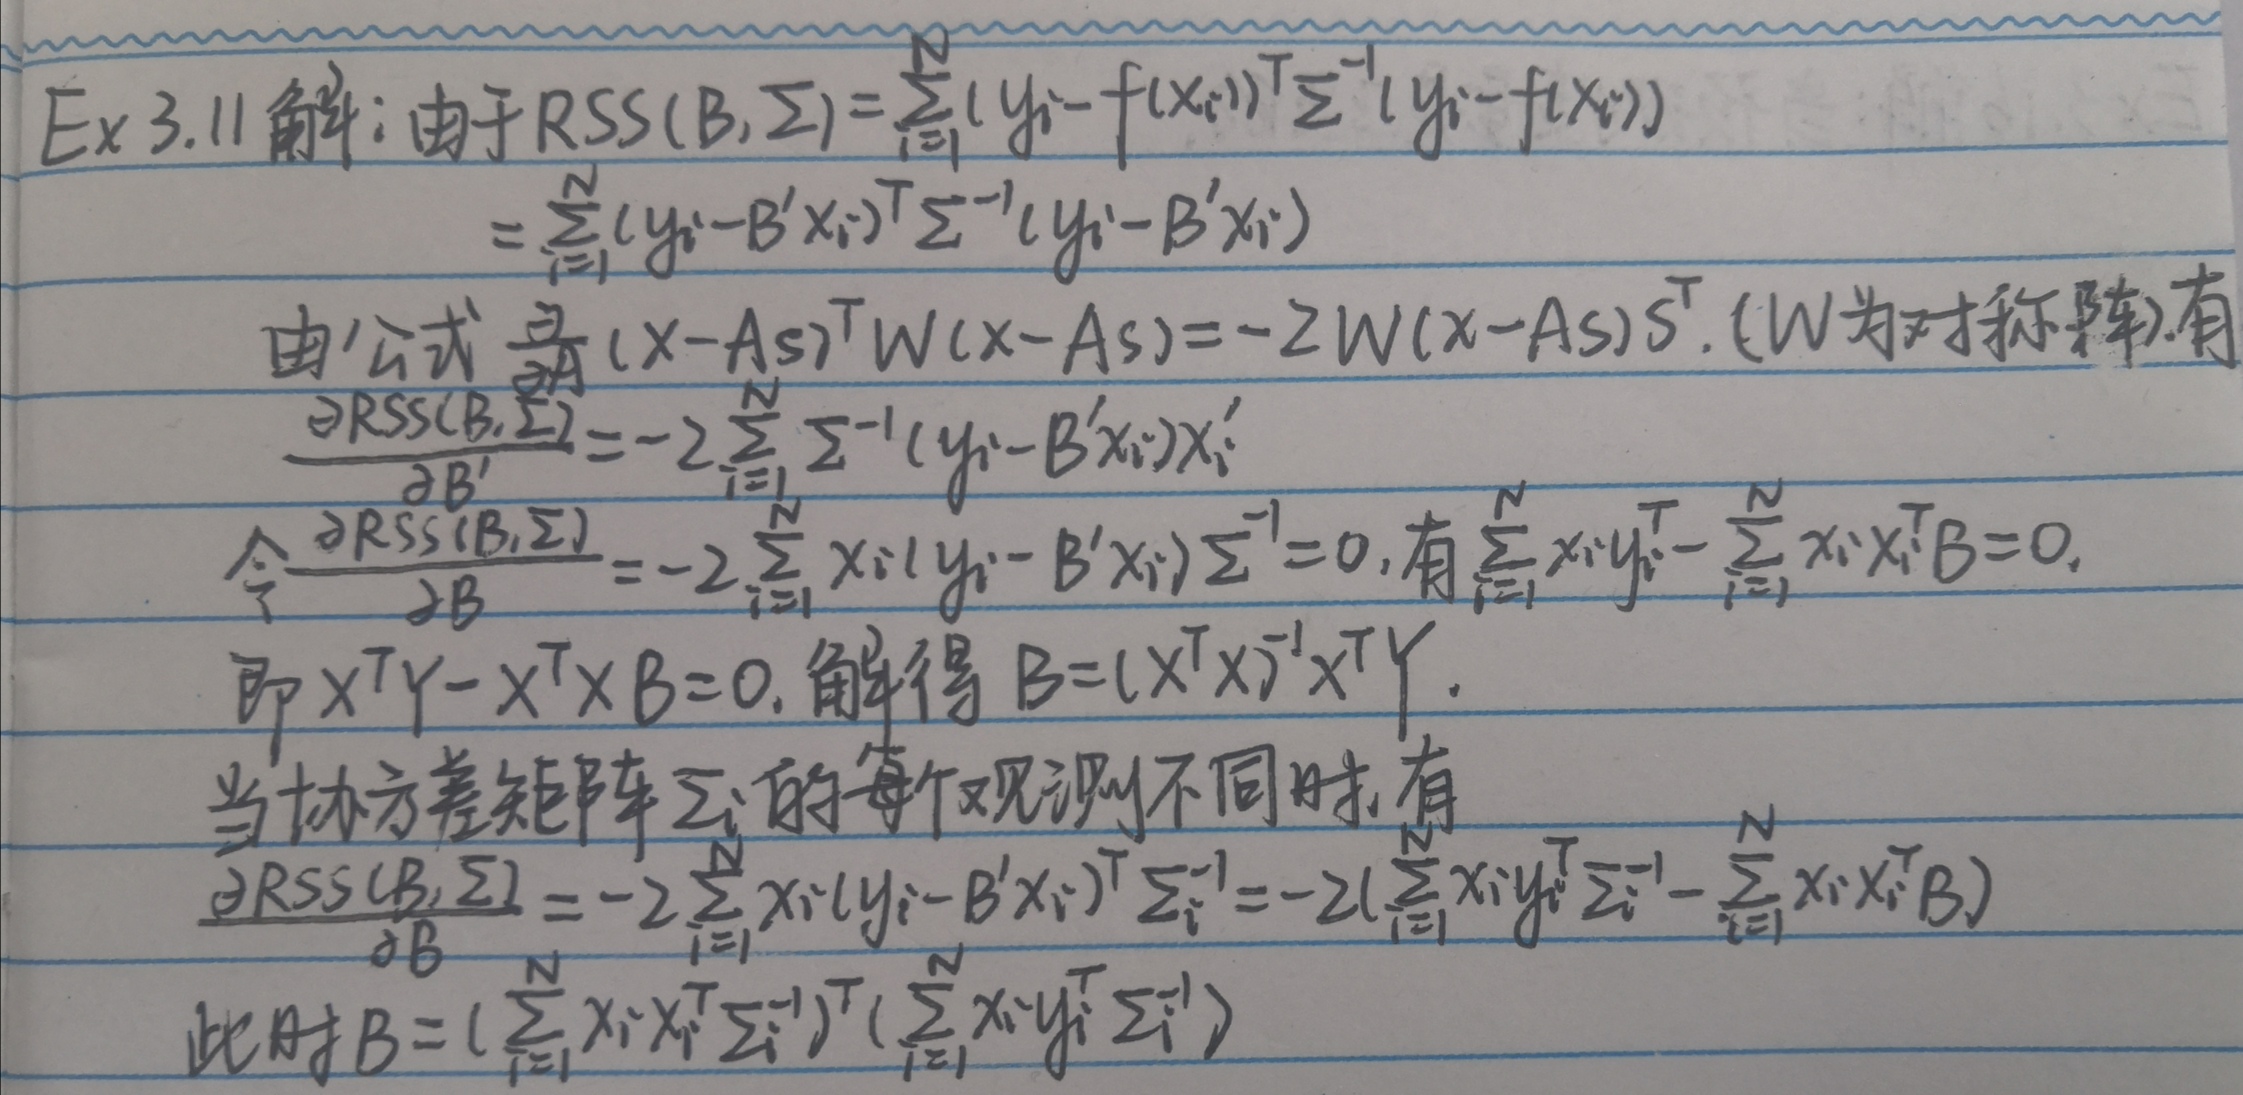 Ex 3.11 解：由于 RSS(B,Σ) = ∑_{i=1}^{N} (y_i - f(x_i))^T Σ^{-1} (y_i - f(x_i))
= ∑_{i=1}^{N} (y_i - B'x_i)^T Σ^{-1} (y_i - B'x_i)
由公式 ∂/∂A (x-As)^T W(x-As) = -2W(x-As)s^T. (W为对称阵). 有
∂RSS(B,Σ)/∂B' = -2 ∑_{i=1}^{N} Σ^{-1} (y_i - B'x_i)x_i'
令 ∂RSS(B,Σ)/∂B = -2 ∑_{i=1}^{N} x_i(y_i - B'x_i) Σ^{-1} = 0. 有 ∑_{i=1}^{N} x_i y_i^T - ∑_{i=1}^{N} x_i x_i^T B = 0.
即 X^T Y - X^T X B = 0. 解得 B = (X^T X)^{-1} X^T Y.
当协方差矩阵 Σ_i 的每个观测不同时, 有
∂RSS(B,Σ)/∂B = -2 ∑_{i=1}^{N} x_i(y_i - B'x_i)^T Σ_i^{-1} = -2(∑_{i=1}^{N} x_i y_i^T Σ_i^{-1} - ∑_{i=1}^{N} x_i x_i^T B)
此时 B = (∑_{i=1}^{N} x_i x_i^T Σ_i^{-1})^T (∑_{i=1}^{N} x_i y_i^T Σ_i^{-1})